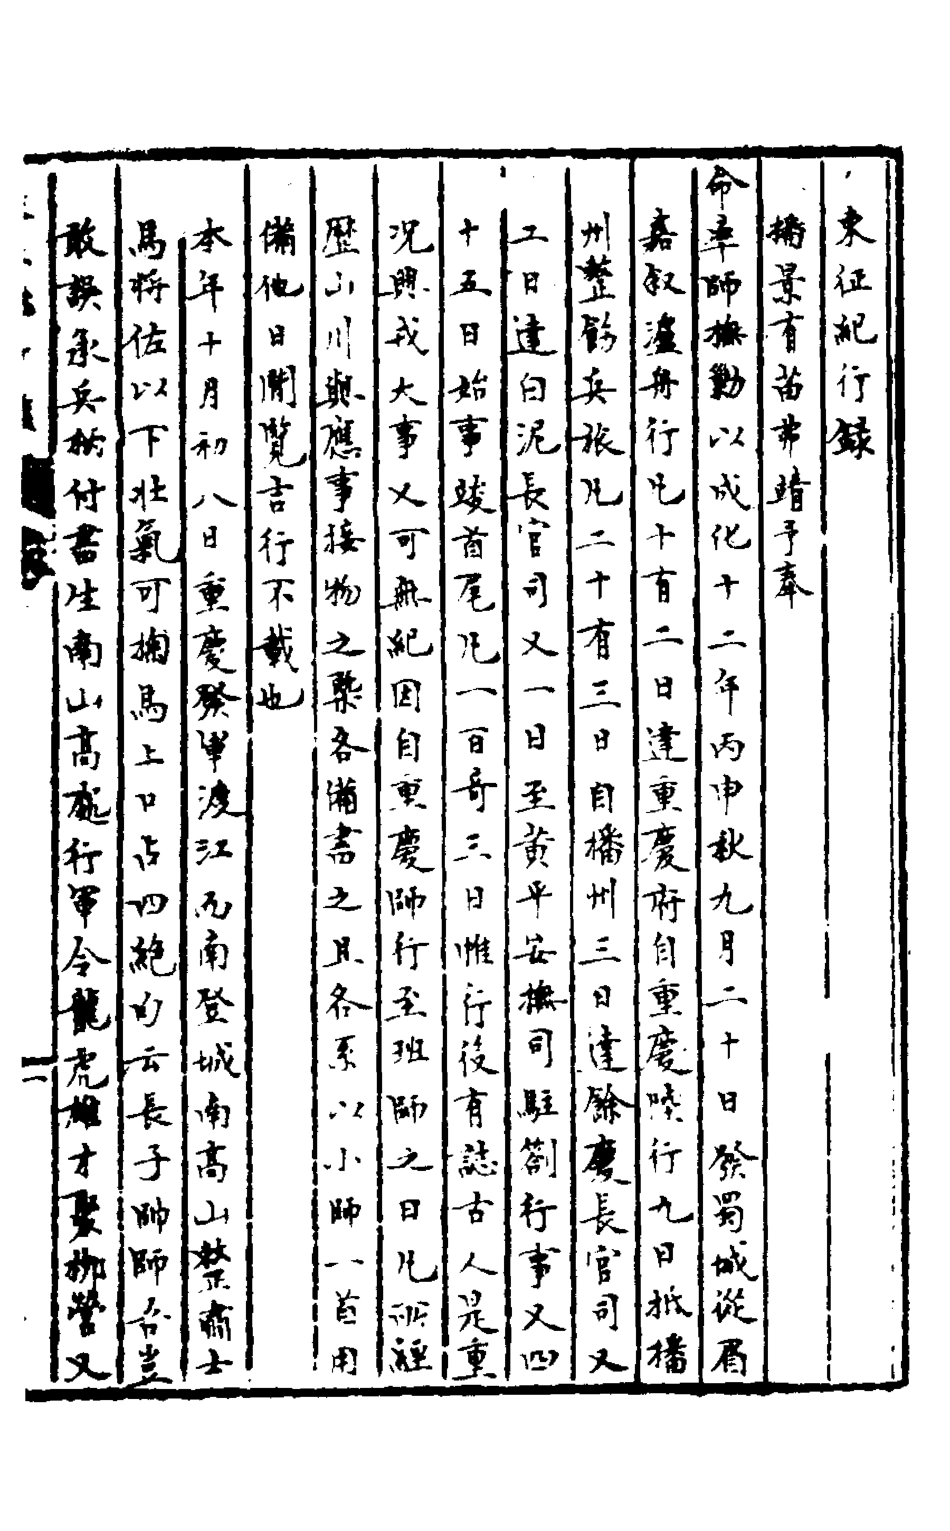 東征紀行録
播景有苗弗靖予奉
命率師撫勦以成化十二年丙申秋九月二十日發蜀城從眉
嘉叙瀘舟行凡十有二日達重慶府自重慶陸行九日抵播
州整飭兵旅凡二十有三日自播州三日達餘慶長官司又
二日達白泥長官司又一日至黄平安撫司駐劄行事又四
十五日始事竣首尾凡一百奇三日惟行役有誌古人是重
况興戎大事又可無紀因自重慶師行至班師之日凡所經
歷山川與應事接物之槩各備書之且各系以小師一首用
備他日閒覽吉行不載也
本年十月初八日重慶發軍渡江而南登城南高山整肅士
馬將佐以下壯氣可掬馬上口占四絶句云長子帥師否豈
敢誤承兵柄付書生南山高處行軍令龍虎雄才聚栁營又